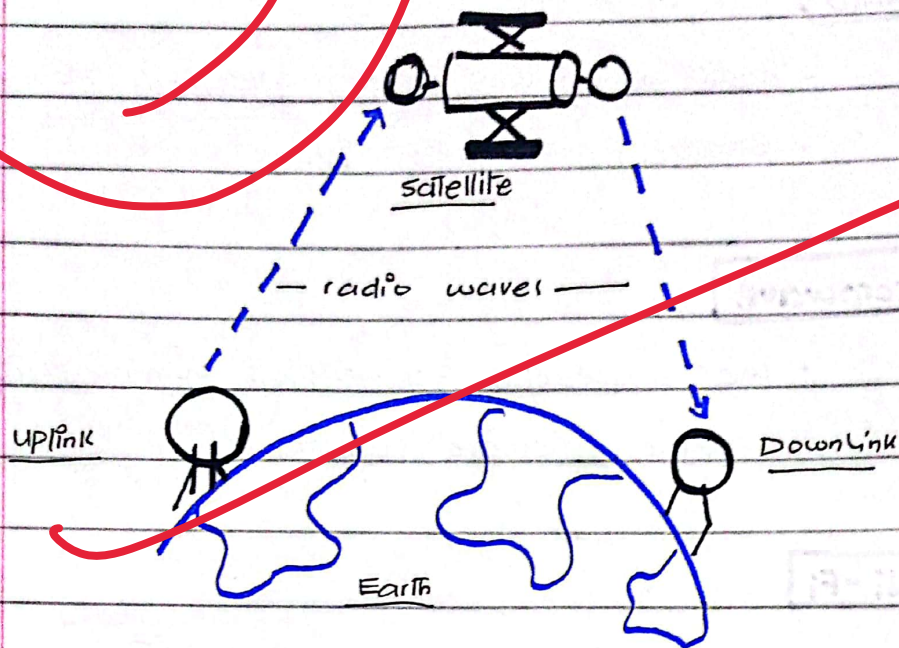 Satellite
radio waves
Uplink
DownLink
Earth